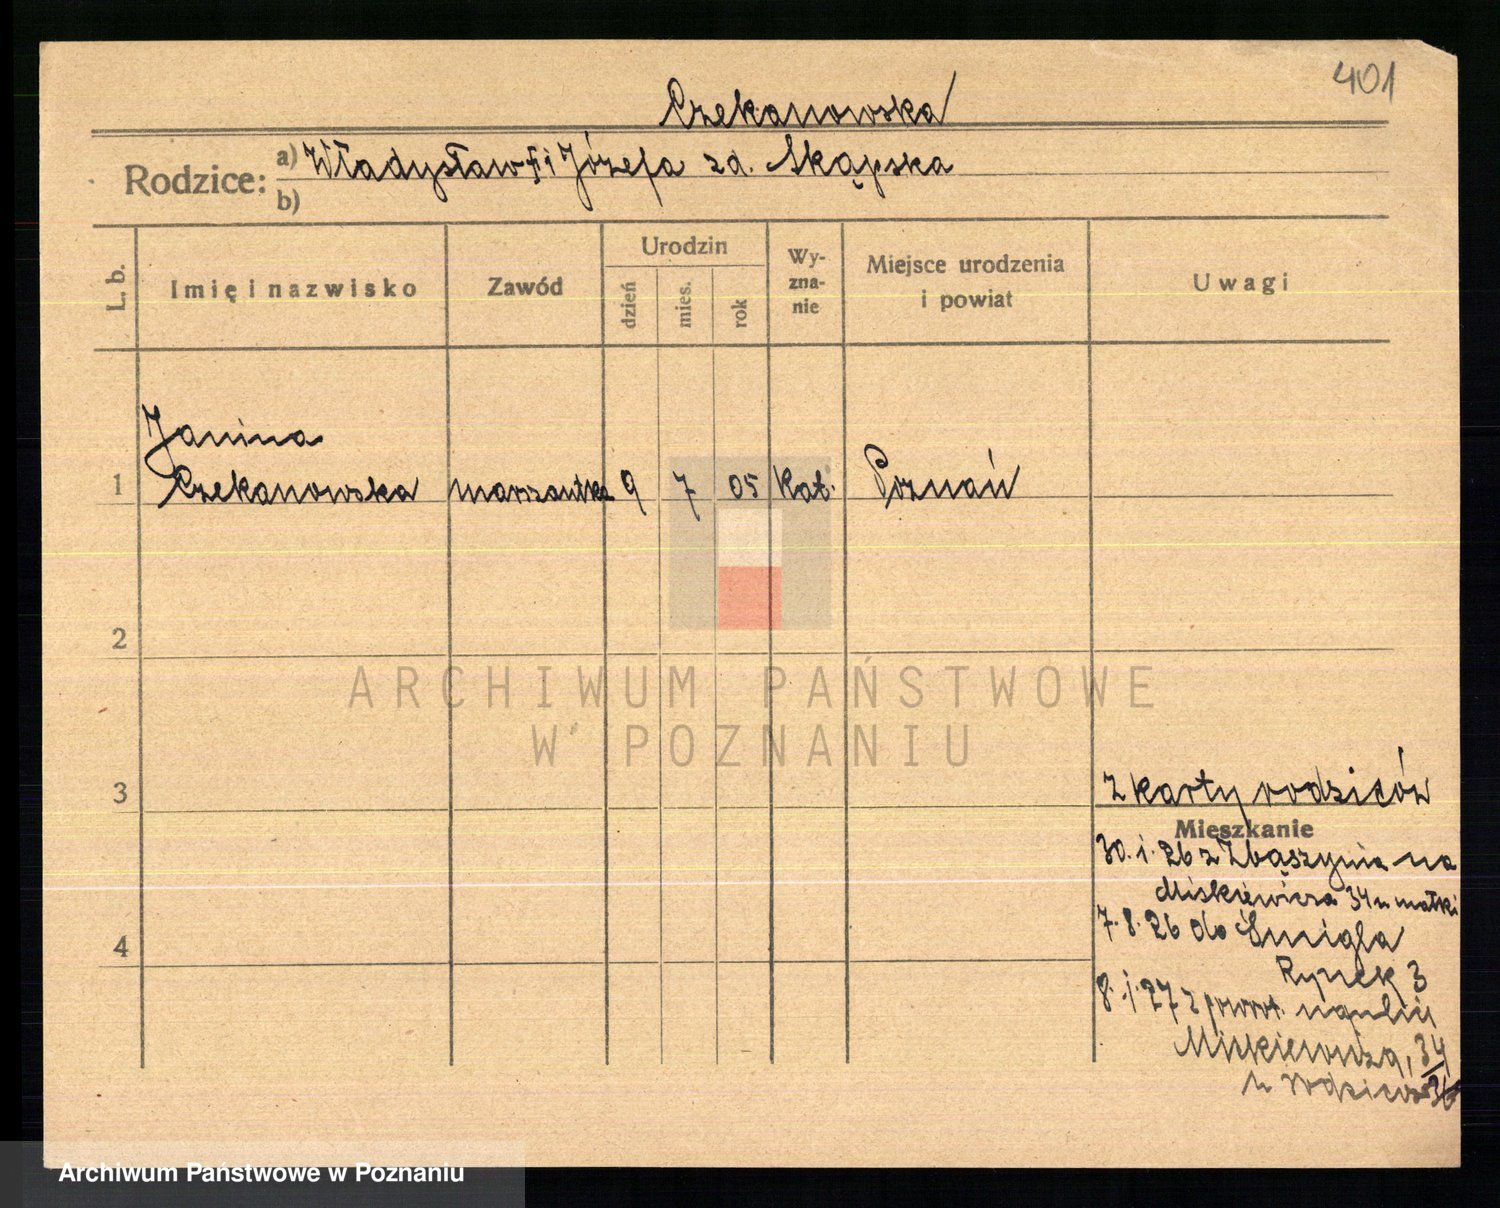 401
Czekanowska
Rodzice: a) Władysław † i Józefa zd. Skąpska
b)
L. b.
Imię i nazwisko
Zawód
Urodzin
dzień
mies.
rok
Wy-
zna-
nie
Miejsce urodzenia
i powiat
Uwagi
Janina
1 Czekanowska 9 7 05 Kat. Poznań
2
ARCHIWUM PAŃSTWOWE
W POZNANIU
3
z karty rodziców
Mieszkanie
30. 1. 26 z Zbąszynia na
34 u matki
7. 8. 26 do Śmigla
4
Rynek 3
8. 1. 27 z powrot.
34
u rodziców 36
Archiwum Państwowe w Poznaniu